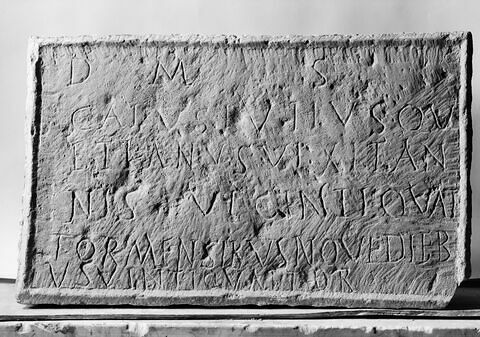 D M S
GAIVS IVLIVS QV
ETIANVS VIXIT AN
NIS QVAT
TOR MENSIBVS NOVE DIEB
VS